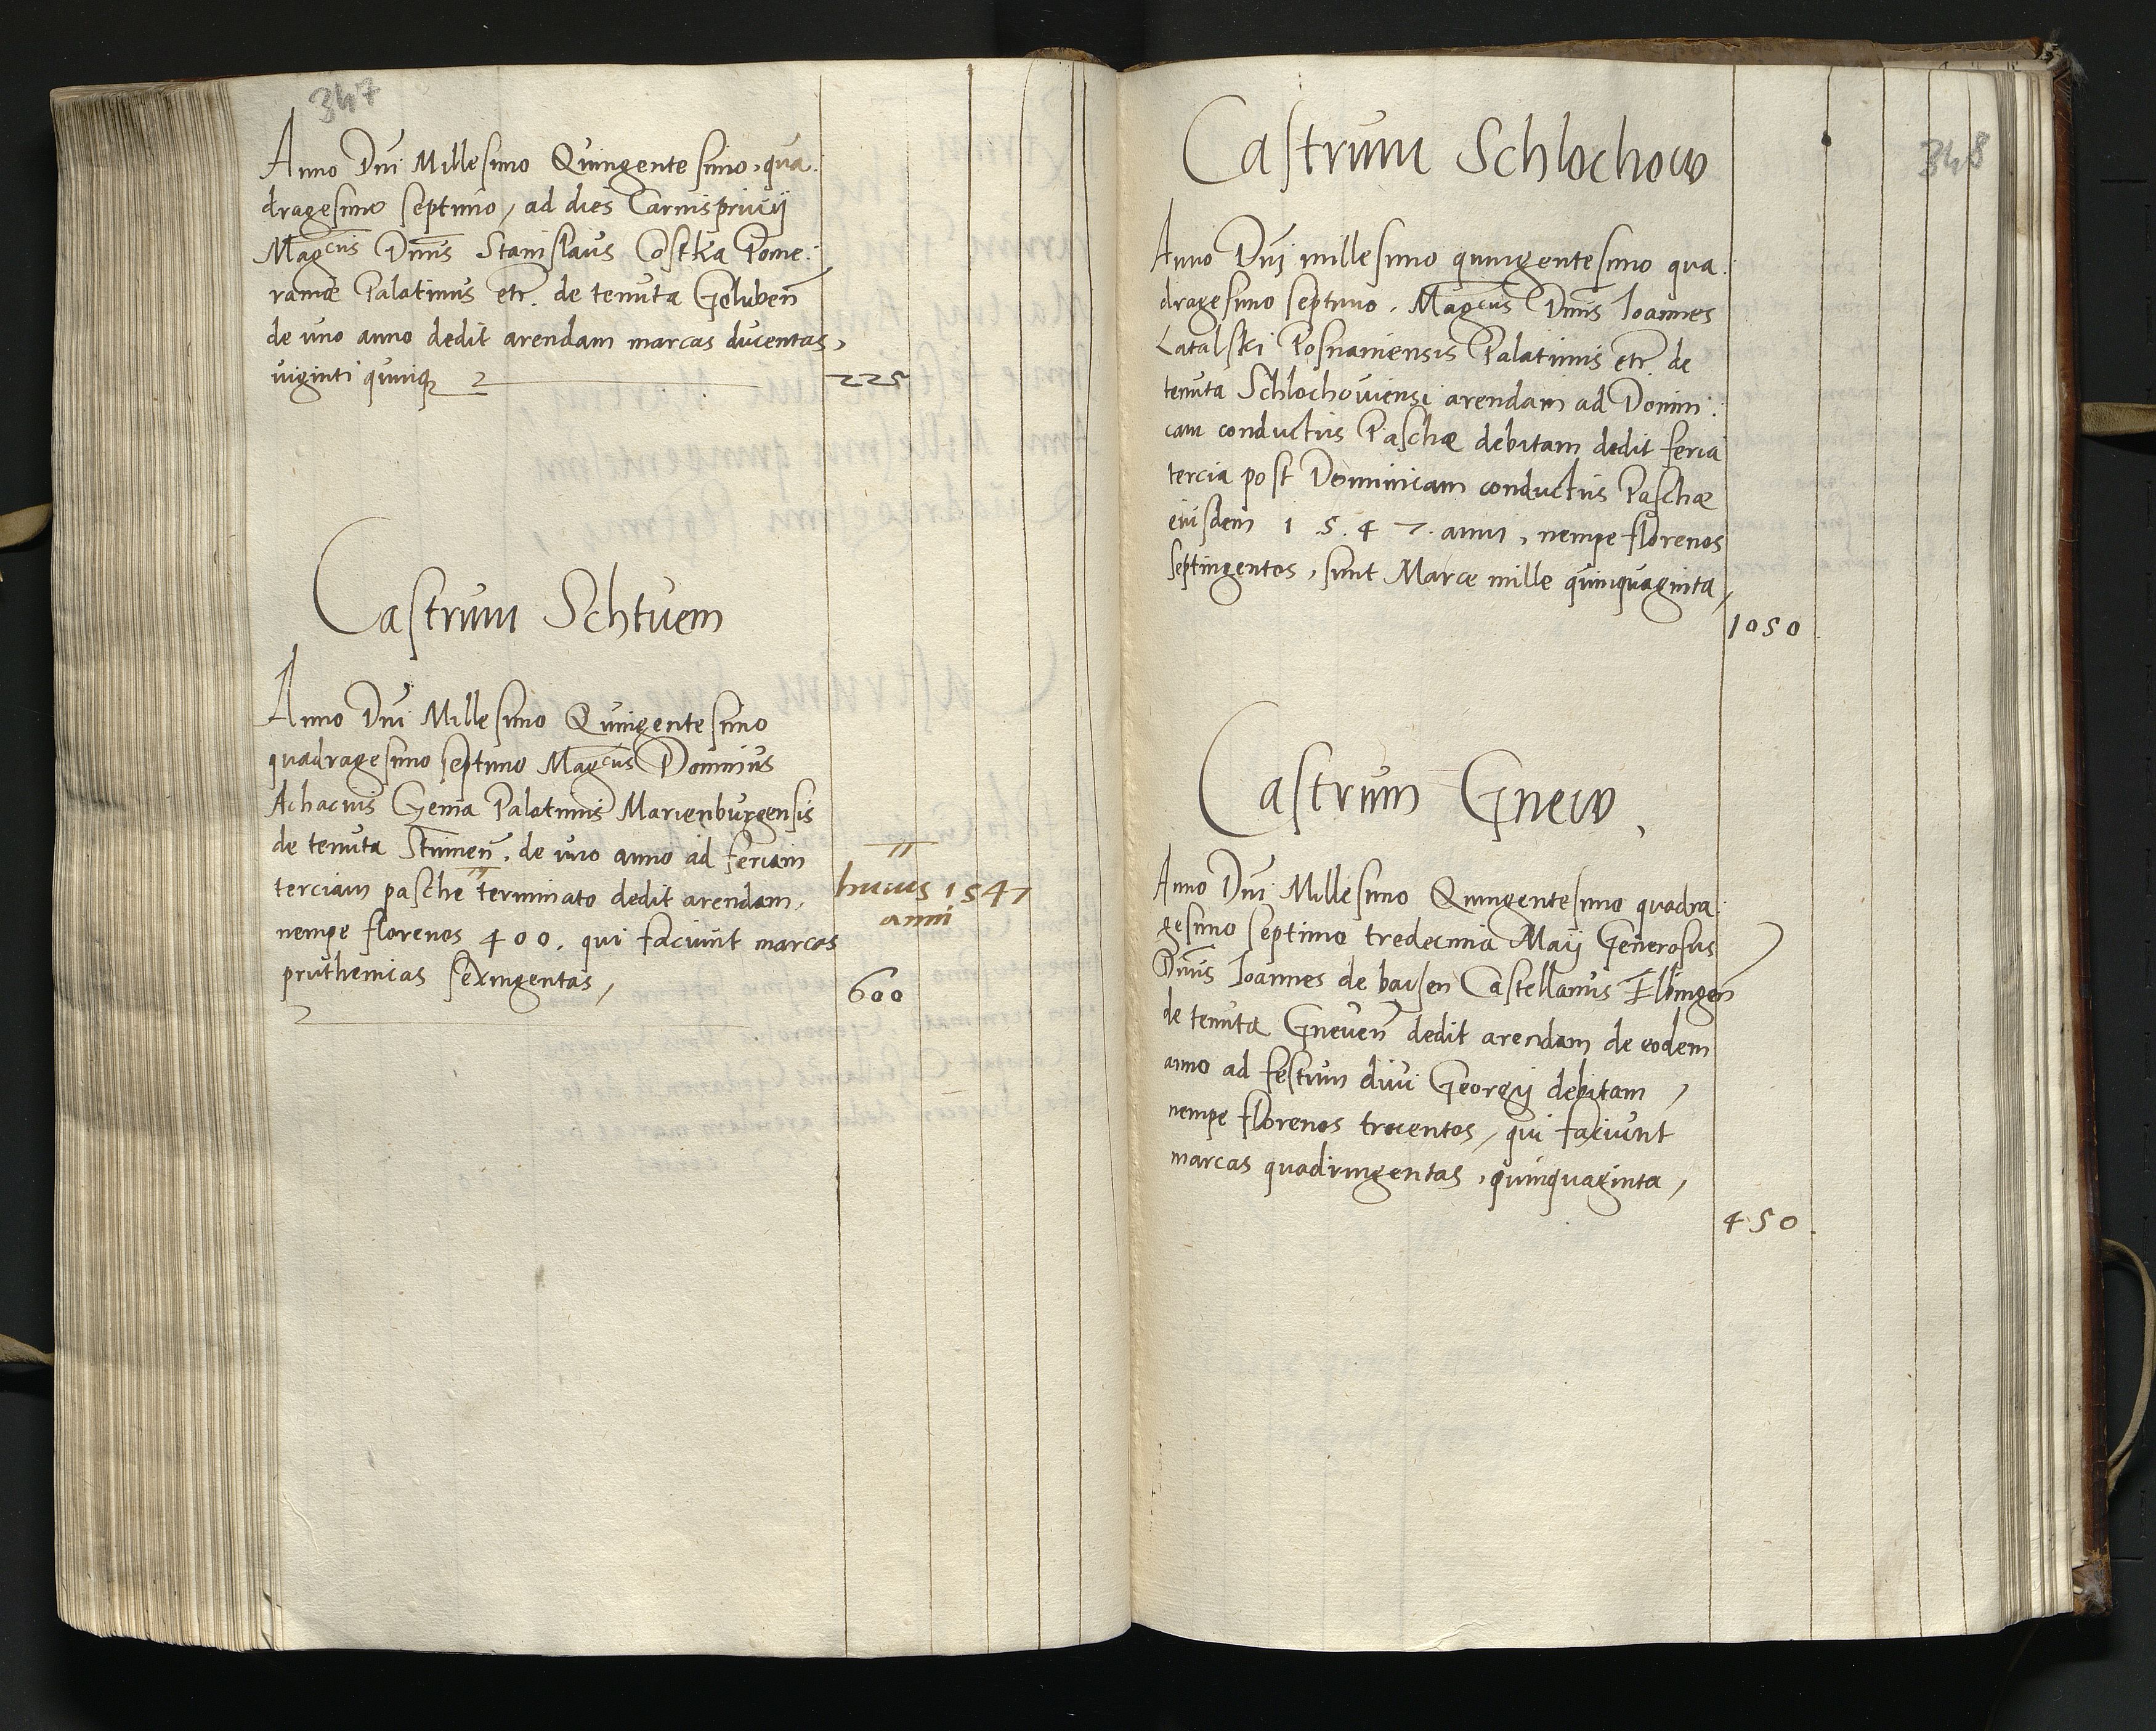 347
Anno Dni Millesimo Quingentesimo, qua:
dragesimo septimo, ad dies Carnisprivij
Magcus Dnus Stanislaus Costka Pome:
raniæ Palatinus etc. de tenuta Goluben
de uno anno dedit arendam marcas ducentas,
viginti quinq
225
Castrum Schtuem
Anno Dni Millesimo Quingentesimo
quadragesimo septimo Magcus Dominus
Achacius Gema Palatinus Marienburgensis
de tenuta Stumen. de uno anno ad feriam
terciam pasche terminato dedit arendam,
huius 1547
anni
nempe florenos 400. qui faciunt marcas
pruthenicas sexingentas,
600
348
Castrum Schlochow
Anno Dni millesimo quingentesimo qua:
dragesimo septimo. Magcus Dnus Ioannes
Latalski Posnaniensis Palatinus etc. de
tenuta Schlochoviensi arendam ad Domini:
cam conductus Paschæ debitam dedit feria
tercia post Dominicam conductus Paschæ
eiusdem 1 5. 4 7. anni, nempe florenos
septingentos, sunt Marcæ mille quinquaginta,
1050
Castrum Gnew,
Anno Dni Millesimo Quingentesimo quadra:
gesimo septimo tredecima Maij Generosus
Dnus Ioannes de baisen Castellanus Elbingen
de tenuta Gneuen dedit arendam de eodem
anno ad festum divi Georgij debitam,
nempe florenos trecentos, qui faciunt
marcas quadringentas, quinquaginta,
450.